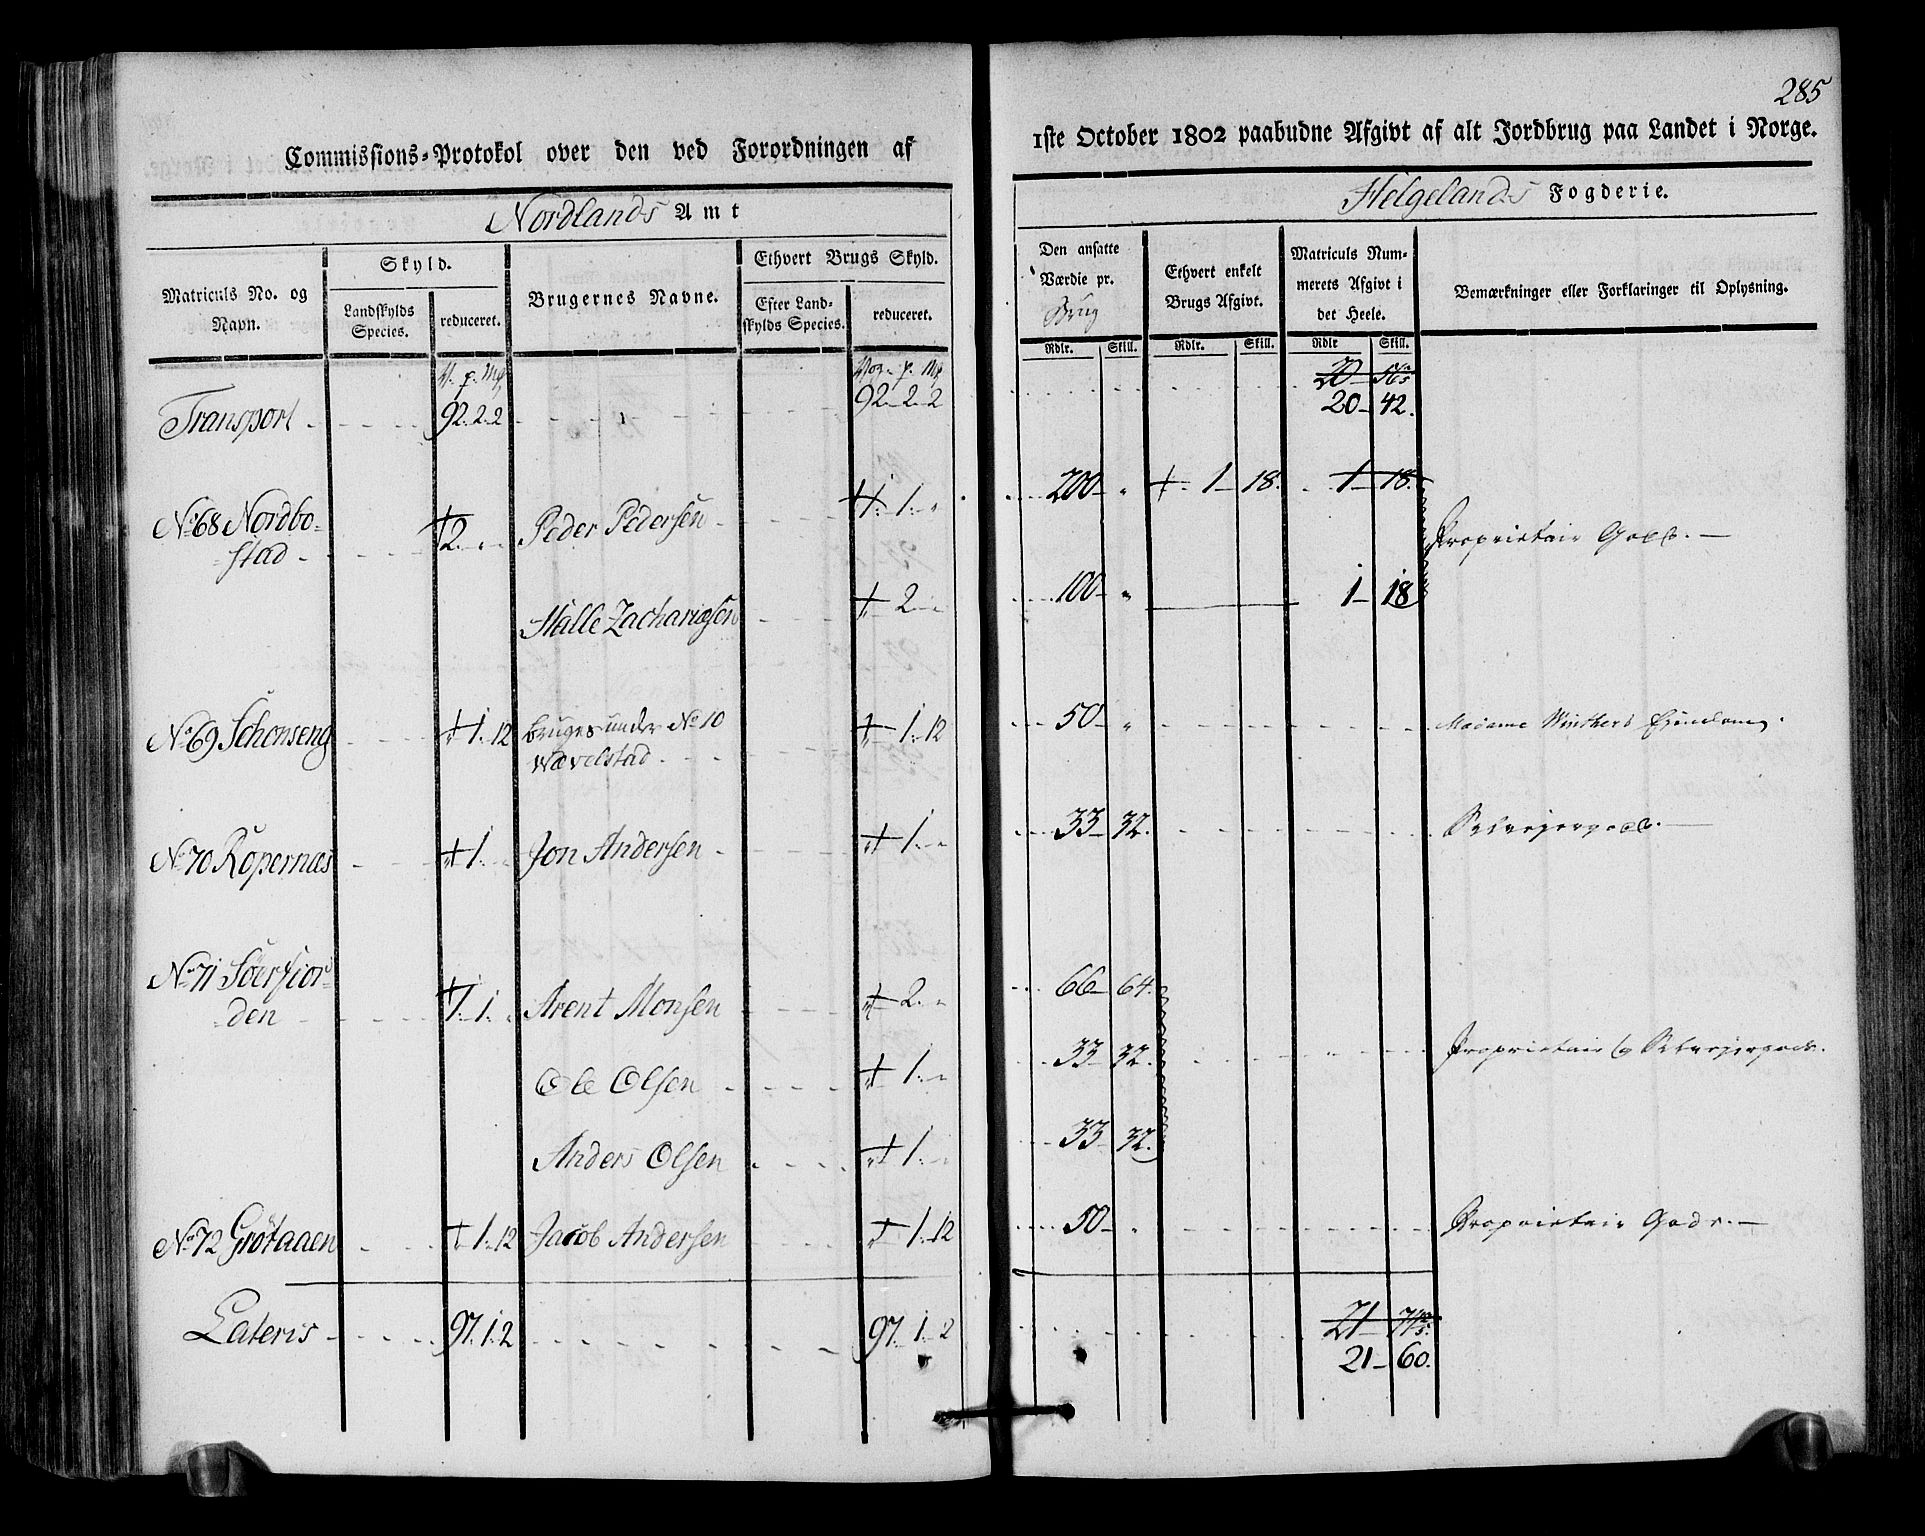 285
Commissions-Protokol over den ved Forordningen af
1ste October 1802 paabudne Afgivt af alt Jordbrug paa Landet i Norge.
Nordlands Amt
Helgelands Fogderie.
Matriculs No. og Navn.
Skyld.
Landskylds Species.
reduceret.
Brugernes Navne.
Ethvert Brugs Skyld.
Efter Landskylds Species.
reduceret.
Den ansatte Værdie pr. Brug
Ethvert enkelt Brugs Afgivt.
Matriculs Nummerets Afgivt i det Heele.
Bemærkninger eller Forklaringer til Oplysning.
Rdlr. Skill. Rdlr. Skill. Rdlr Skill.
V. p. Mk Vog. p. Mk 20 56
Transport 92. 2. 2 92 2 2 20 42.
No 68 Nordbo=
=stad 2 Peder Pedersen 1 200 1 18. 1 18. Proprietair Gods.
Malle Zachariesen 2 100 1 18
No 69 Schonseng 1. 12 bruges under No 10
Wævelstad 1. 12 50 Madame Winthers Ejendom.
No 70 Ropernæs 1 Jon Andersen 1 33 32. Selvejergods.
No 71 Söerfior=
=den 1. 1. Arent Monsen 2 66 64.
Ole Olsen 1 33 32. Proprietair og Selvejergods.
Anders Olsen 1 33 32.
No 72 Grötaaen 1. 12 Jacob Andersen 1. 12 50 Proprietair Gods.
Lateris 97. 1. 2 97. 1. 2 21 74
21 60.